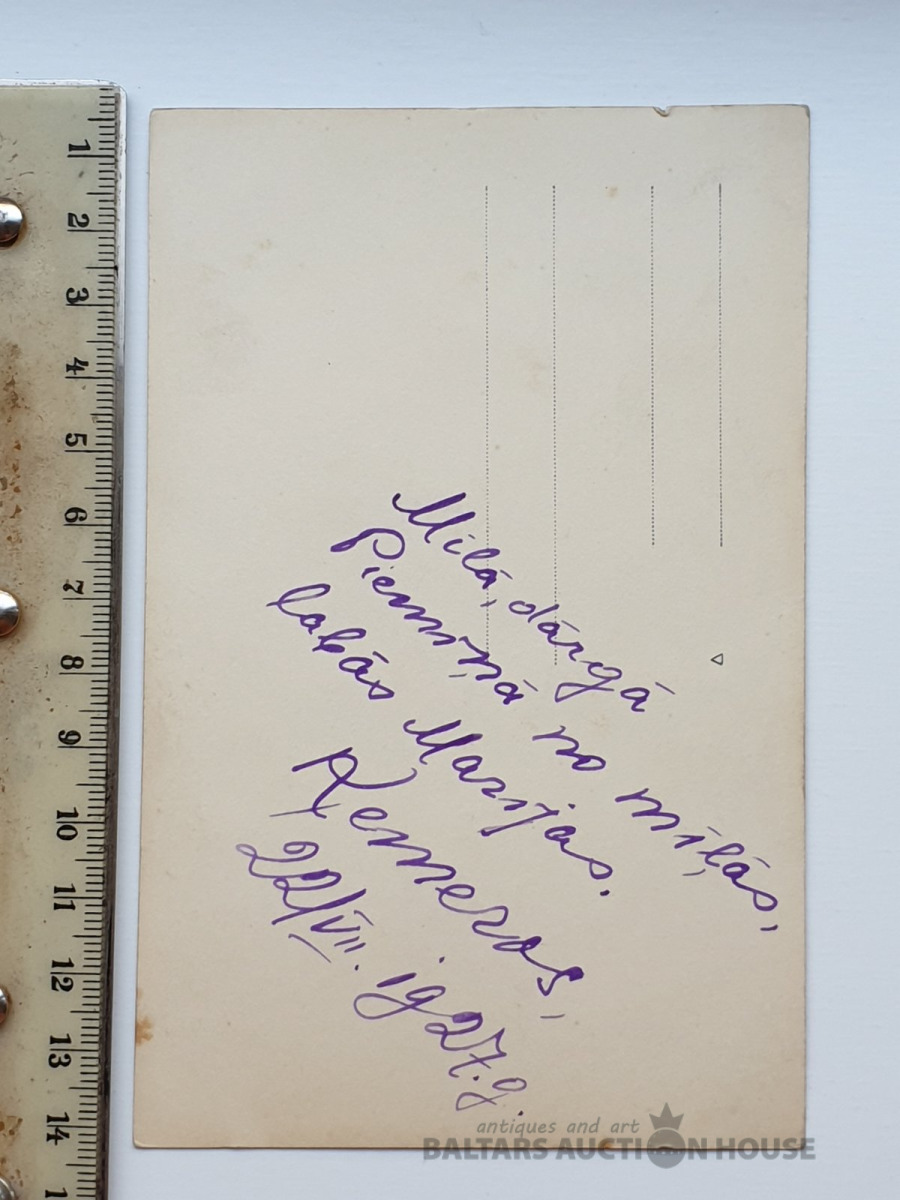 Mīļā, dārgā
Piemiņā no mīļās,
labās Marijas.
Ķemeros,
22/VII. 1927. g.
1
2
3
4
5
6
7
8
9
10
11
12
13
14
antiques and art
BALTARS AUCTION HOUSE